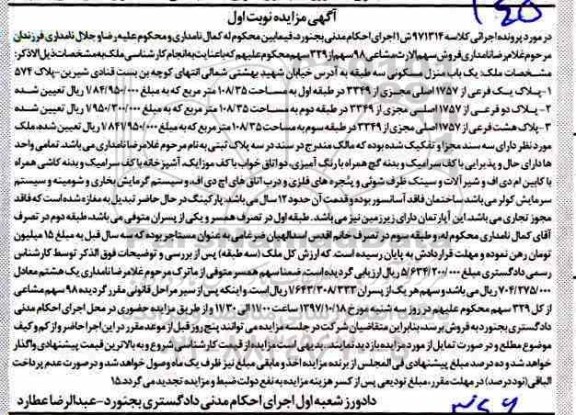 آگهی مزایده نوبت اول
در مورد پرونده اجرائی کلاسه ۹۷۱۳۱۴ ش ا اجرای احکام مدنی بجنورد، فیمابین محکوم له کمال نامداری و محکوم علیه رضا و جلال نامداری فرزندان
مرحوم غلامرضا نامداری فروش سهم الارث مشاعی ۹۸ سهم از ۳۲۹ سهم محکوم علیهم که با عنایت به انجام کارشناسی ملک به مشخصات ذیل الاذکر:
مشخصات ملک: یک باب منزل مسکونی سه طبقه به آدرس خیابان شهید بهشتی شمالی انتهای کوچه بن بست قنادی شیرین-پلاک ۵۷۴
۱- پلاک یک فرعی از ۱۷۵۷ اصلی مجزی از ۳۳۴۹ در طبقه اول به مساحت ۱۰۸/۳۵ متر مربع که به مبلغ ۱/۷۸۴/۹۵۰/۰۰۰ ریال تعیین شده
۲- پلاک دو فرعی از ۱۷۵۷ اصلی مجزی از ۳۳۴۹ در طبقه دوم به مساحت ۱۰۸/۳۵ متر مربع که به مبلغ ۱/۷۹۵۰/۳۰۰/۰۰۰ ریال تعیین شده
۳- پلاک هشت فرعی از ۱۷۵۷ اصلی مجزی از ۳۳۴۹ در طبقه سوم به مساحت ۱۰۸/۳۵ متر مربع که به مبلغ ۱/۸۴۷/۹۵۰/۰۰۰ ریال تعیین شده، ملک
مورد نظر دارای سه سند مجزا و تفکیک شده بوده که مالک مندرج در سند در سه پلاک ثبتی به نام مرحوم غلامرضا نامداری می باشد. تمامی واحد
ها دارای حال و پذیرایی با کف سرامیک و بدنه گچ همراه با رنگ آمیزی، دو اتاق خواب با کف موزاییک، آشپزخانه با کف سرامیک و بدنه کاشی همراه
با کابین ام دی اف و شیر آلات و سینک ظرف شوئی و پنجره های فلزی و درب اتاق های اچ دی اف، و سیستم گرمایش بخاری و شومینه و سیستم
سرمایش کولر می باشد ساختمان فاقد آسانسور بوده و قدمت آن حدود ۱۲ سال می باشد. پارکینگ در حال حاضر تبدیل به مغازه شده است که فاقد
مجوز تجاری می باشد. این آپارتمان دارای زیرزمین نیز می باشد. طبقه اول در تصرف همسر و یکی از پسران متوفی می باشد، طبقه دوم در تصرف
آقای کمال نامداری محکوم له، و طبقه سوم در تصرف خانم اقدس اسدالهیان ضرغامی به عنوان مستاجر بوده که سه سال قبل به مبلغ ۱۵ میلیون
تومان رهن نموده و مهلت قراردادش به پایان رسیده است. که ارزش کل ملک (سه طبقه) پس از بررسی و توضیحات فوق الذکر توسط کارشناس
رسمی دادگستری مبلغ ۵/۶۳۴/۲۰۰/۰۰۰ ریال ارزیابی گردیده است. ضمنا سهم همسر متوفی از ماترک مرحوم غلامرضا نامداری یک هشتم معادل
۷۰۴/۲۷۵/۰۰۰ ریال می باشد و سهم هر یک از پسران ۱/۶۴۳/۳۰۸/۳۳۳ ریال است و اینکه پس از سیر مراحل قانونی مقرر گردیده ۹۸ سهم مشاعی
از کل ۳۲۹ سهم محکوم علیهم در روز سه شنبه مورخ ۱۳۹۷/۱۰/۱۸ ساعت ۱۱/۰۰ الی ۱۱/۳۰ و از طریق مزایده حضوری در محل اجرای احکام مدنی
دادگستری بجنورد به فروش برسد، بنابراین متقاضیان شرکت در جلسه مزایده می توانند پنج روز قبل از موعد مقرر در این اجرا حاضر و از کم و کیف
موضوع مطلع و در صورت تمایل از مورد مزایده بازدید نمایند. بدیهی است مزایده از قیمت کارشناسی شروع و به بالاترین قیمت پیشنهادی واگذار
خواهد شد و ده درصد مبلغ پیشنهادی فی المجلس از برنده مزایده اخذ و مابقی مبلغ نیز ظرف یک ماه وصول خواهد شد و در صورت عدم پرداخت
الباقی (نود درصد) در مهلت مقرر، مبلغ تودیعی پس از کسر هزینه مزایده به نفع دولت ضبط و مزایده تجدید می گردد. ۱۵
دادورز شعبه اول اجرای احکام مدنی دادگستری بجنورد-عبدالرضا عطارد